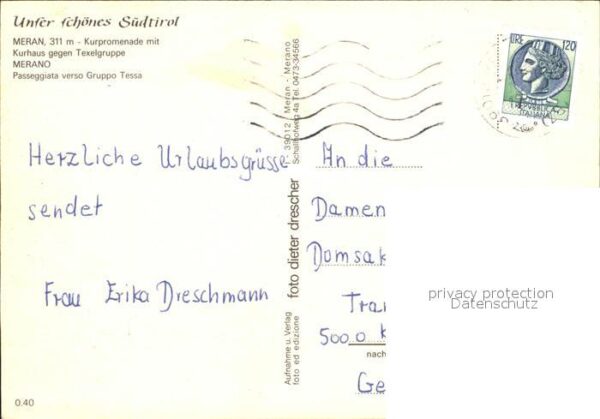 Unser schönes Südtirol
MERAN, 311 m - Kurpromenade mit
Kurhaus gegen Texelgruppe
MERANO
Passeggiata verso Gruppo Tessa
LIRE 120
REPUBBLICA
ITALIANA
Herzliche Urlaubsgrüsse
sendet
Frau Erika Dreschmann
foto dieter drescher
I - 39012 - Meran - Merano
Schallhofweg 4a Tel. 0473-34566
Aufnahme u. Verlag
foto ed edizione
An die
Damen
Domsak
Tran
5000 K
nach
Ge
privacy protection
Datenschutz
0.40